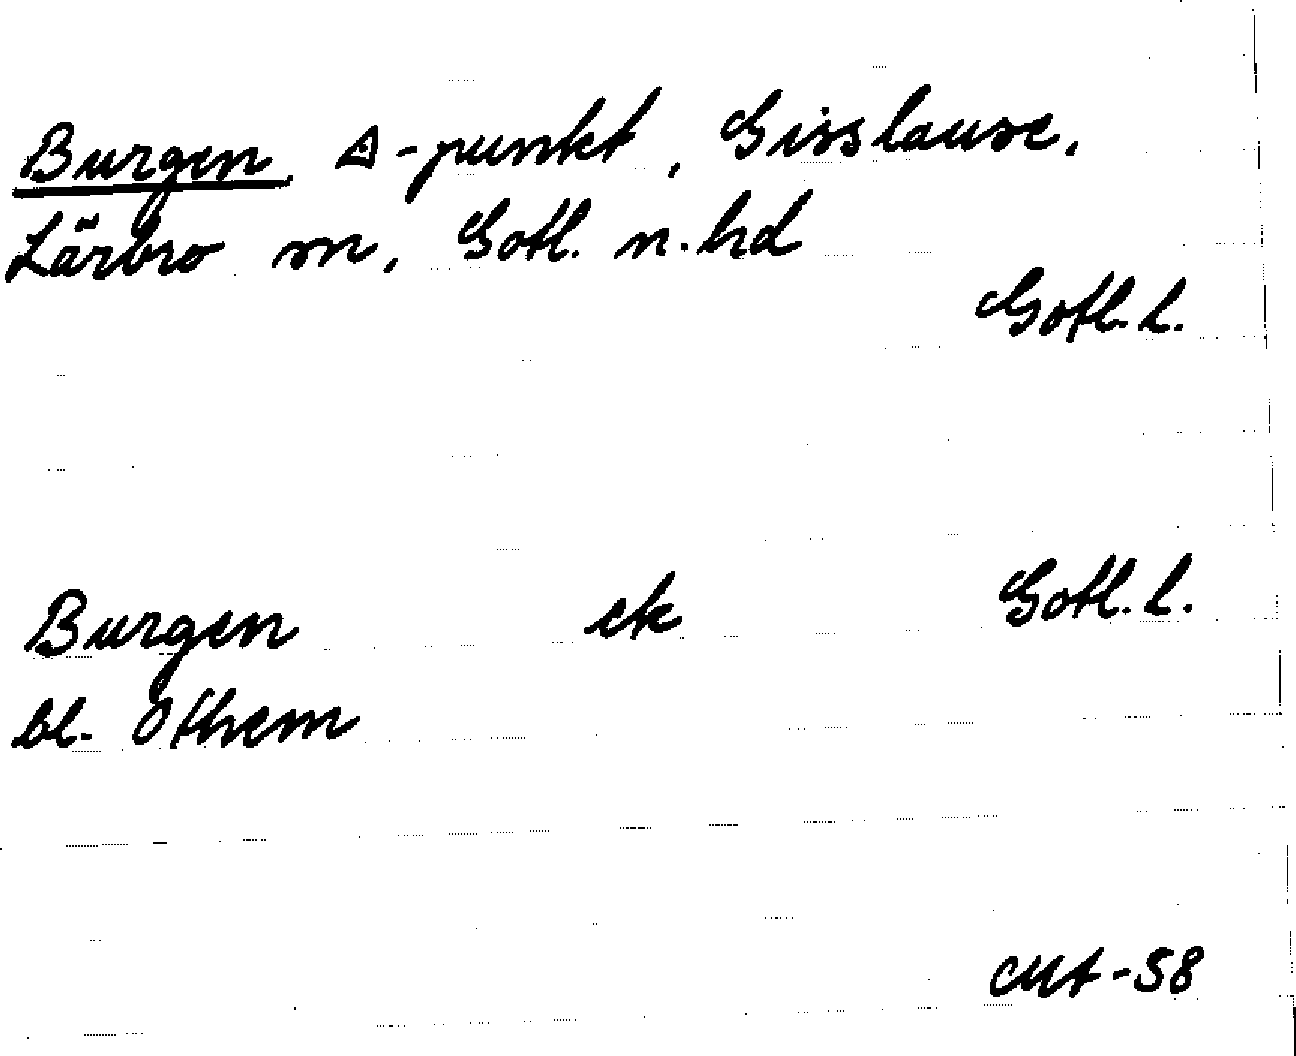 Burgen, △-punkt, Gisslause,
Lärbro sn, Gotl. n. hd
Gotl. l.
Burgen ek Gotl. l.
bl. Othem
-58